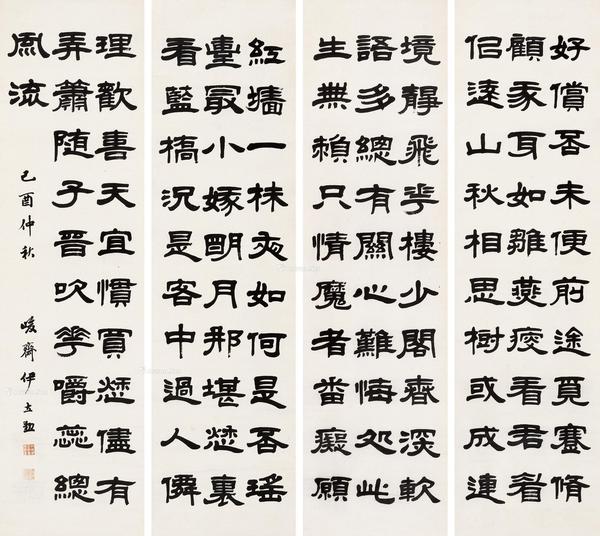 好償否未便前途覓蹇脩
顧家耳如雛燕瘦看君眉
佀遠山秋相思樹或成連
境靜飛花樓少閣春深軟
語多總有關心難悔処此
生無賴只情魔者番癡願
紅墻一抹夜如何是否瑤
臺最小嫁明月那堪愁裏
看藍橋況是客中過人
理歡喜天宜慣買愁儘有
弄簫隨子晉吹花嚼蕊總
風流
己酉仲秋 峻齋伊立勳